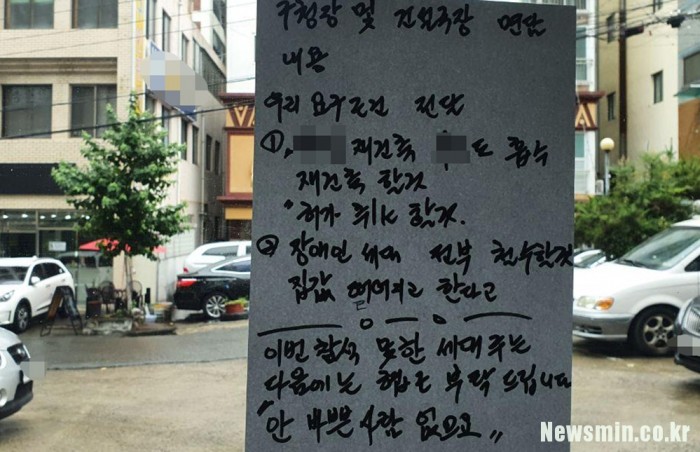 구청장 및 건설국장 면담
내용
우리 요구조건 전달
① 재건축 도 흡수
재건축 할것
"허가 취소 할것.
② 장애인 세대 전부 철수할것
집값 떨어지고 한다고
이번 참석 못한 세대주는
다음에는 협조 부탁 드립니다
"안 바쁜 사람 없으고"
Newsmin.co.kr